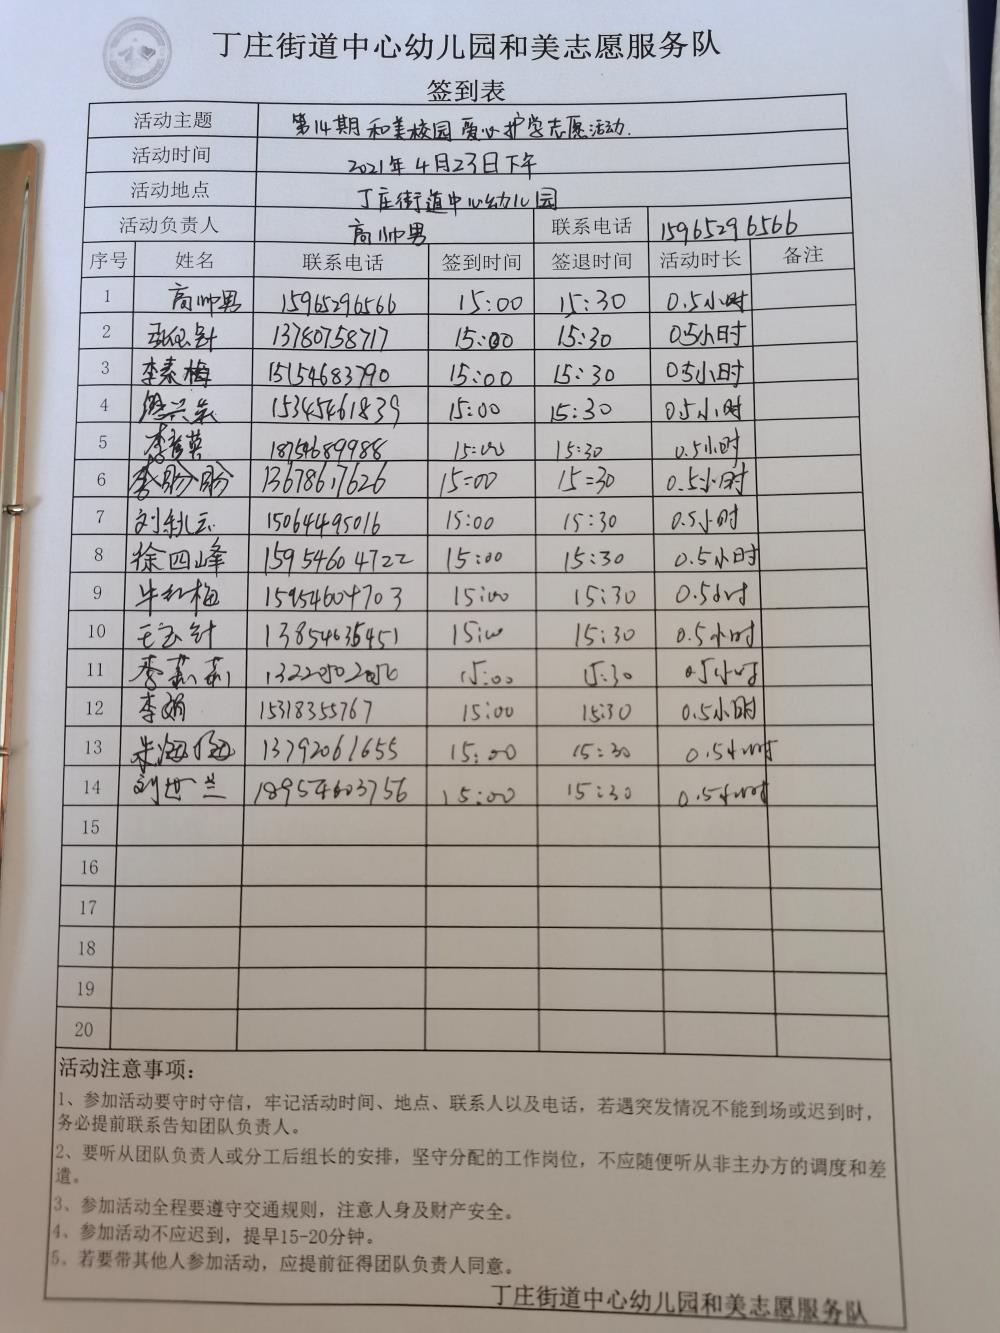 丁庄街道中心幼儿园和美志愿服务队
签到表
活动主题 第14期和美校园爱心护学志愿活动.
活动时间 2021年4月23日下午
活动地点 丁庄街道中心幼儿园
活动负责人 高帅男 联系电话 15965296566
序号 姓名 联系电话 签到时间 签退时间 活动时长 备注
1 高帅男 15965296566 15:00 15:30 0.5小时
2 13780758717 15:00 15:30 0.5小时
3 李素梅 15154683790 15:00 15:30 0.5小时
4 15345461839 15:00 15:30 0.5小时
5 18754689988 15:00 15:30 0.5小时
6 李盼盼 13678617626 15:00 15:30 0.5小时
7 刘秋云 15064495016 15:00 15:30 0.5小时
8 徐四峰 15954604722 15:00 15:30 0.5小时
9 牛红梅 15954604703 15:00 15:30 0.5小时
10 王玉针 15:00 15:30 0.5小时
11 李莉莉 15:00 15:30 0.5小时
12 李娟 15318355767 15:00 15:30 0.5小时
13 朱海梅 13792061655 15:00 15:30 0.5小时
14 刘世兰 18954603756 15:00 15:30 0.5小时
15
16
17
18
19
20
活动注意事项：
1、参加活动要守时守信，牢记活动时间、地点、联系人以及电话，若遇突发情况不能到场或迟到时，
务必提前联系告知团队负责人。
2、要听从团队负责人或分工后组长的安排，坚守分配的工作岗位，不应随便听从非主办方的调度和差
遣。
3、参加活动全程要遵守交通规则，注意人身及财产安全。
4、参加活动不应迟到，提早15-20分钟。
5、若要带其他人参加活动，应提前征得团队负责人同意。
丁庄街道中心幼儿园和美志愿服务队